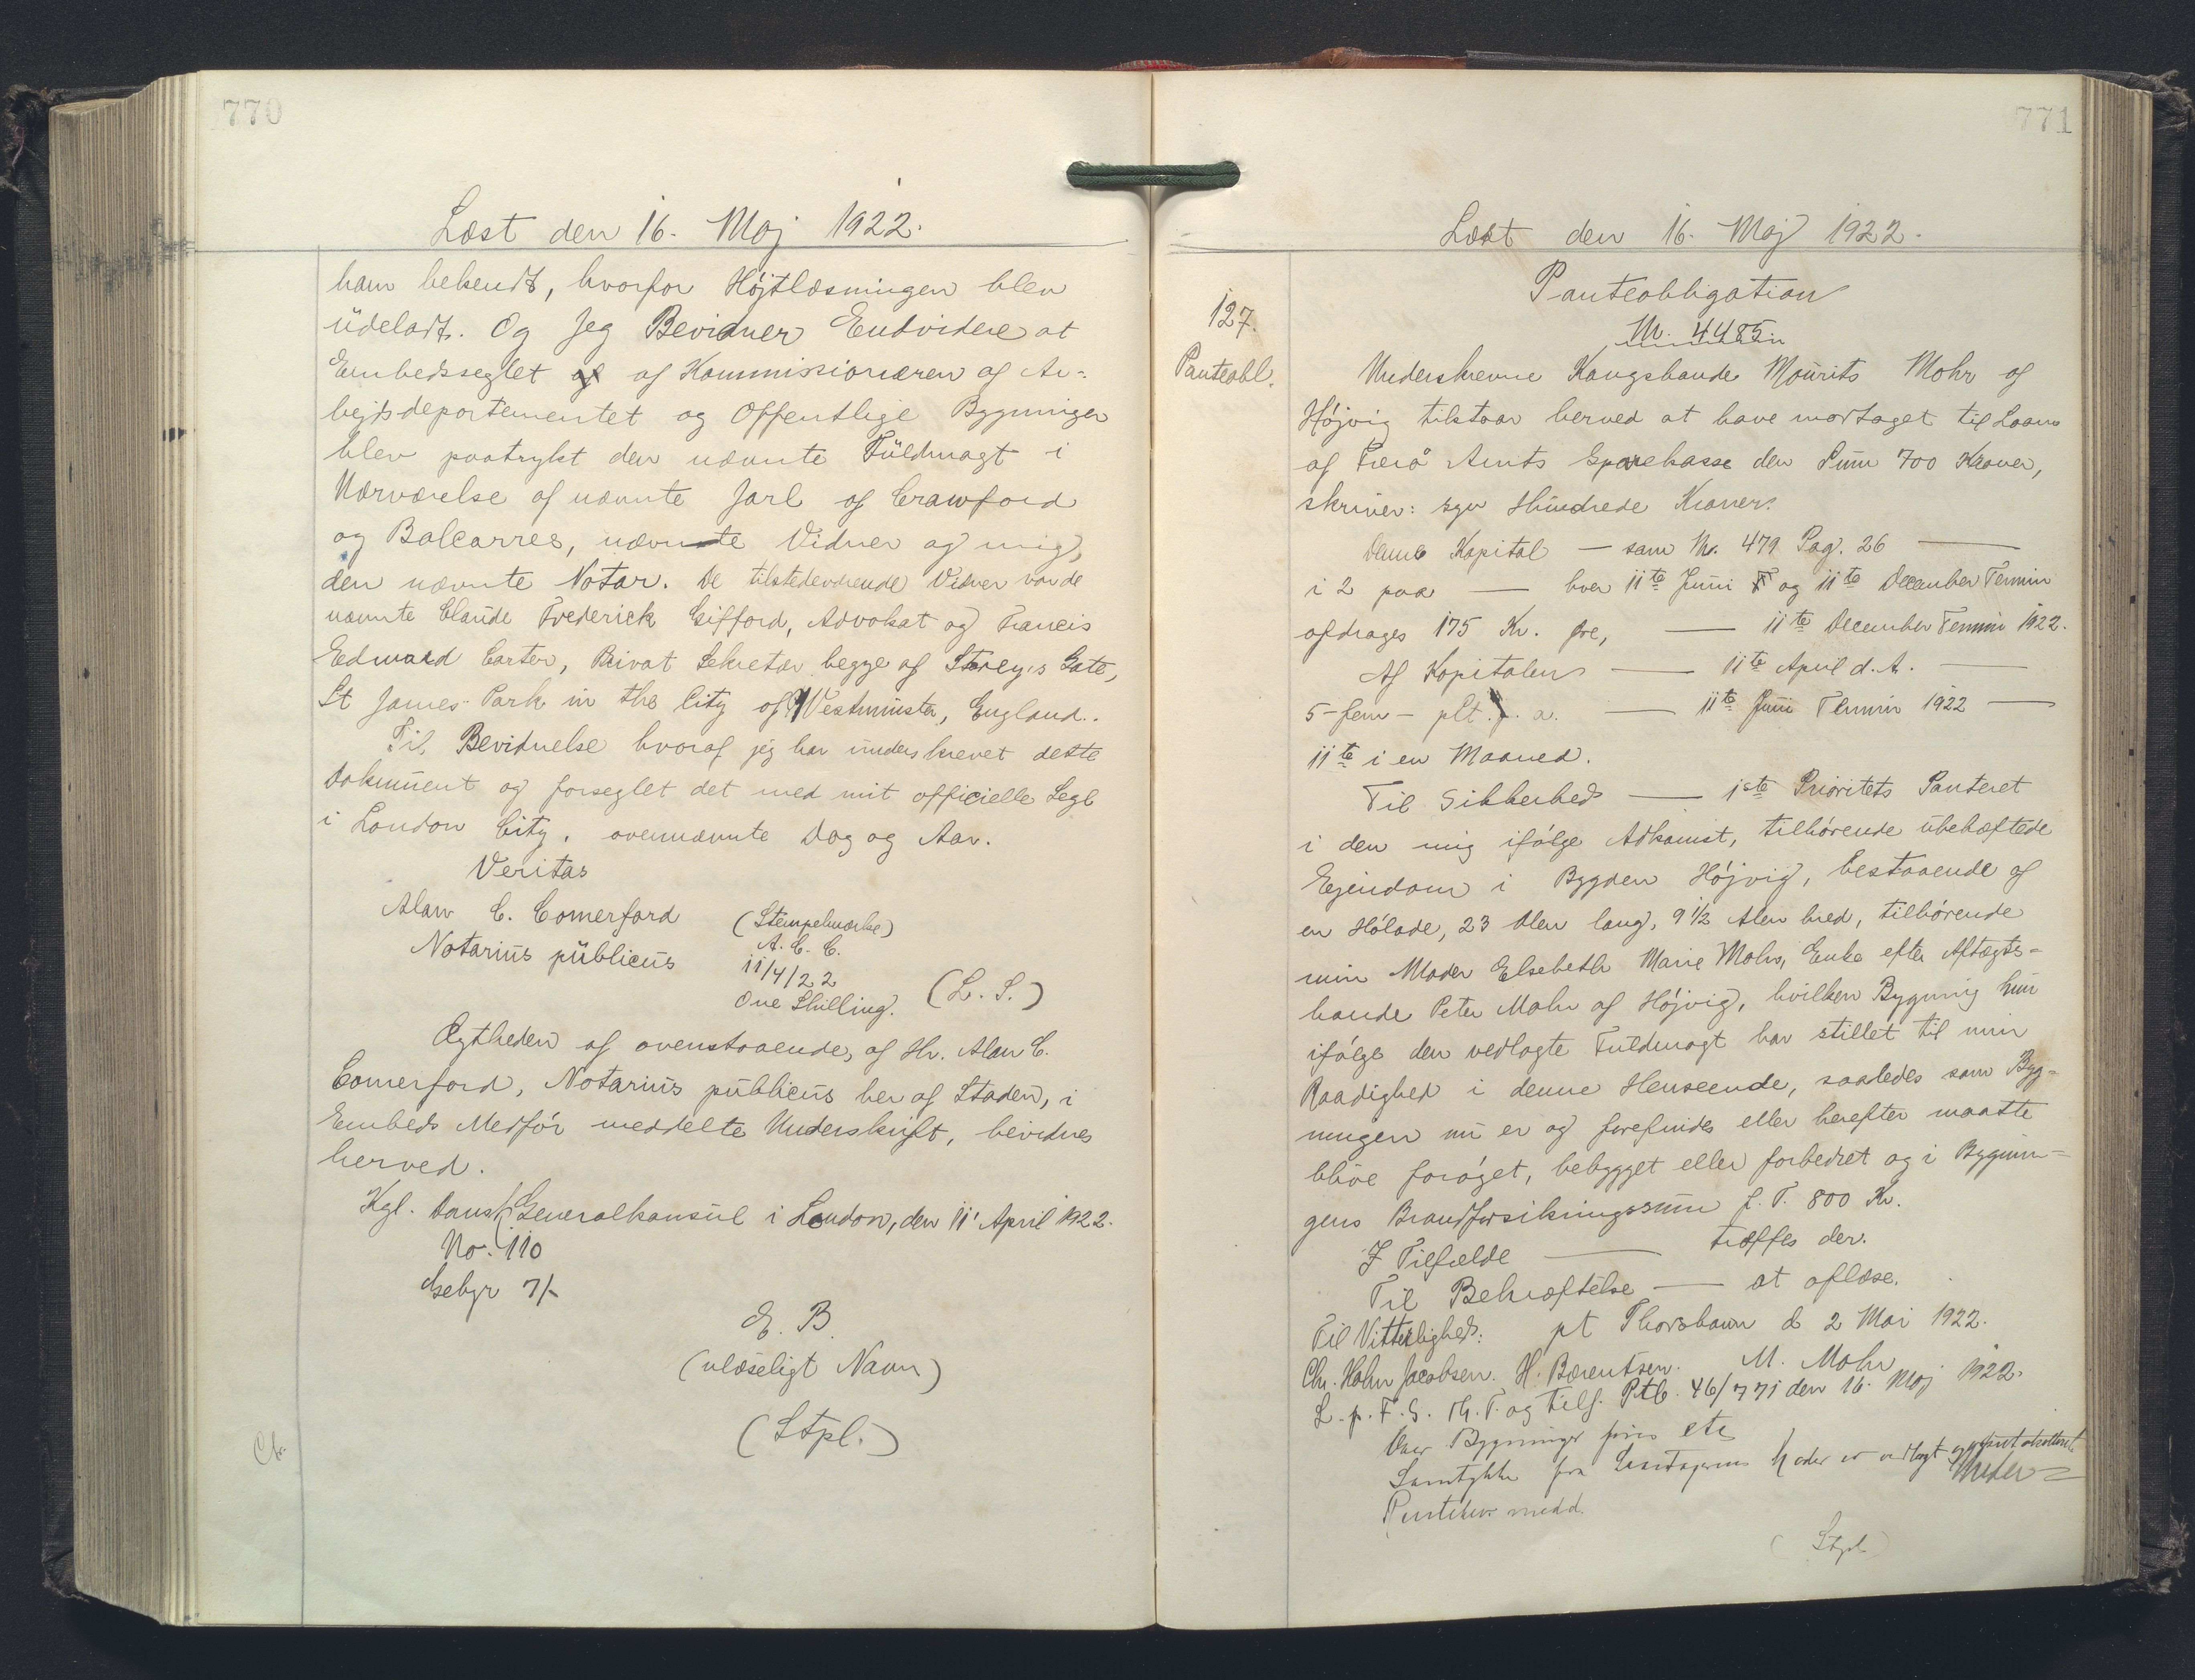 770
Læst den 16. Maj 1922.
ham bekendt, hvorfor Højtlæsningen blev
udeladt. Og Jeg Bevidner Endvidere at
Embedsseglet af Kommissionæren of Ar-
bejdsdepartementet og Offentlige Bygninger
blev paatrykt den nævnte Fuldmagt i
Nærværelse af nævnte Jarl of Crawford
og Balcarres, nævnte Vidner og mig,
den nævnte Notar. De tilstedeværende Vidner var de
nævnte Claude Frederick Gifford, Advokat og Francis
Edward Carter, Privat Sekretær begge af Storey's Gate,
St James Park in the City of Westminster, England.
Til Bevidnelse hvoraf jeg har underskrevet dette
Dokument og forseglet det med mit officielle Segl
i London City, ovennævnte Dag og Aar.
Veritas
Alan C. Comerford (Stempelmærke)
A. C. C.
Notarius publicus 11/4/22
One Shilling. (L. S.)
Ægtheden af ovenstaaende, af Hr. Alan C.
Comerford, Notarius publicus her af Staden, i
Embeds Medfør meddelte Underskrift, bevidnes
herved.
Kgl. Dansk Generalkonsul i London, den 11' April 1922.
No. 110
Gebyr 7/-
E. B.
(ulæseligt Navn)
(Stpl.)
771
Læst den 16. Maj 1922.
127.
Panteobl.
Panteobligation
Nr. 4485.
Underskrevne Kongsbonde Mourits Mohr af
Højvig tilstaar herved at have modtaget til Laans
af Færø Amts Sparekasse den Sum 700 Kroner,
skriver: syv Hundrede Kroner.
Denne Kapital — som Nr. 479 Pag. 26 —
i 2 paa — hver 11te Juni og 11te December Termin
afdrages 175 Kr. Øre, — 11te December Termin 1922.
Af Kapitalen — 11te April d. A. —
5-fem- pCt. p. a. — 11te Juni Termin 1922 —
11te i en Maaned.
Til Sikkerhed — 1ste Prioritets Panteret
i den mig ifølge Adkomst, tilhørende ubehæftede
Ejendom i Bygden Højvig, bestaaende af
en Hølade, 23 Alen lang, 9 1/2 Alen bred, tilhørende
min Moder Elsebeth Marie Mohr, Enke efter Aftægts-
bonde Peter Mohr af Højvig, hvilken Bygning hun
ifølge den vedlagte Fuldmagt har stillet til min
Raadighed i denne Henseende, saaledes som Byg-
ningen nu er og forefindes eller herefter maatte
blive forøget, bebygget eller forbedret og i Bygnin-
gens Brandforsikringssum f. T. 800 Kr.
I Tilfælde — træffes der.
Til Bekræftelse — at aflæse.
Til Vitterlighed: pt Thorshavn d 2 Mai 1922.
Chr. Holm Jacobsen. H. Bærentsen. M. Mohr
L. p. F. S. Th. T. og tilf. Ptb. 46/771 den 16. Maj 1922.
Bygninger etc
Samtykke fra er vedlagt
medd.
(Stpl)